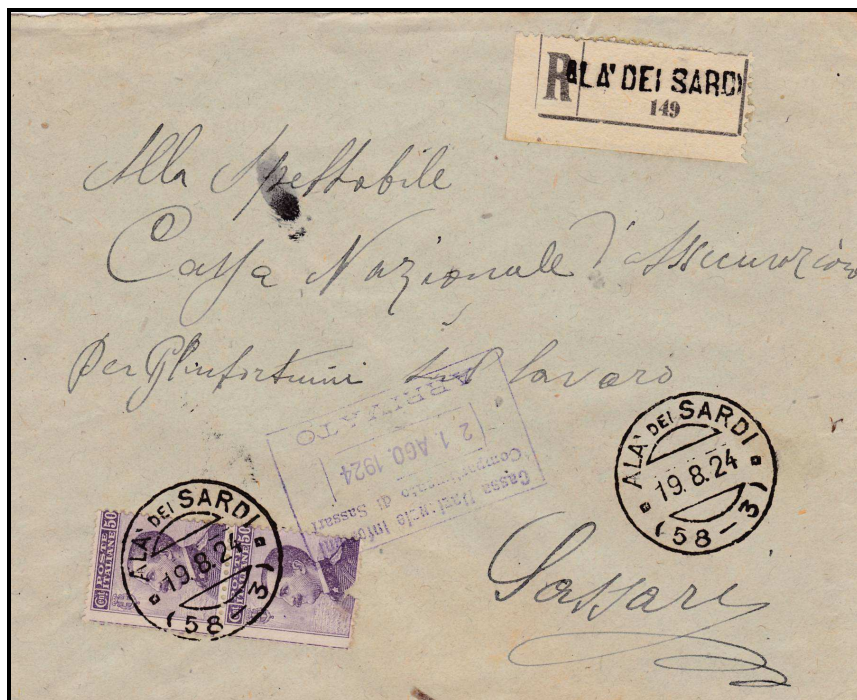 R ALA' DEI SARDI
149
Alla Spettabile
Cassa Nazionale d'Assicurazione
per Gl'infortuni sul lavoro
Sassari
Cassa Nazionale Infortuni
Compartimento di Sassari
21. AGO. 1924
ARRIVATO
ALA' DEI SARDI
19.8.24
(58-3)
ALA' DEI SARDI
19.8.24
(58-3)
POSTE ITALIANE
Cent 50
POSTE ITALIANE
Cent 50